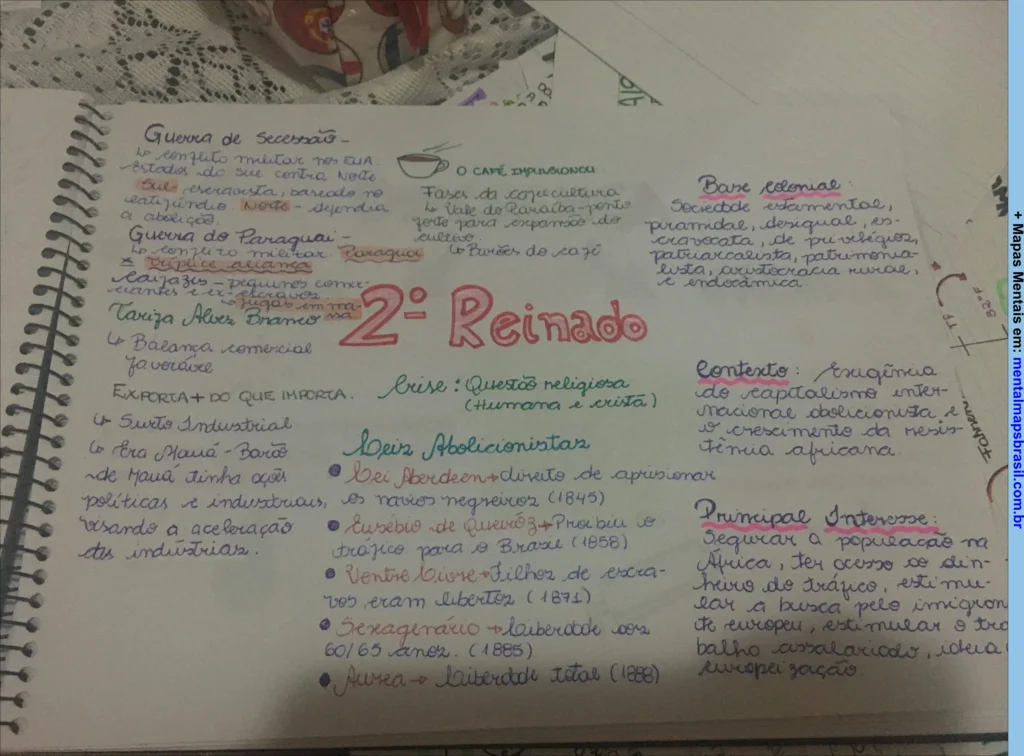 Guerra de Secessão -
↳ conflito militar nos EUA.
Estados do Sul contra Norte
Sul - escravista, baseado no
latifúndio Norte - defendia
a abolição.
Guerra do Paraguai -
↳ conflito militar. Paraguai
* Tríplice aliança
- pequenos comer-
ciantes e ex escravos
↳ fugas em ma-
ssa
Tariza Alvez Branco
↳ Balança comercial
favorável
EXPORTA + DO QUE IMPORTA.
↳ Surto Industrial
↳ Era Mauá - Barão
de Mauá tinha ações
políticas e industriais,
visando a aceleração
das indústrias.
O CAFÉ IMPULSIONOU
Fases da cafeicultura
↳ Vale do Paraíba - ponto
forte para expansão do
cultivo.
↳ Barões do café
2º Reinado
Crise: Questão religiosa
(Humana e cristã)
Leis Abolicionistas
• Lei Aberdeen → direito de aprisionar
os navios negreiros (1845)
• Eusébio de Queiróz → Proibiu o
tráfico para o Brasil (1858)
• Ventre Livre → Filhos de escra-
vos eram libertos (1871)
• Sexagenário → Liberdade aos
60/65 anos. (1885)
• Aurea → Liberdade total (1888)
Base colonial:
Sociedade estamental,
piramidal, desigual, es-
cravocata, de privilégios,
patriarcalista, patrimonia-
lista, aristocracia rural,
e endocâmica.
Contexto: Exigência
do capitalismo inter-
nacional abolicionista e
o crescimento da resis-
tência africana.
Principal Interesse:
Segurar a população na
África, ter acesso ao din-
heiro do tráfico, estimu-
lar a busca pelo imigran
te europeu, estimular o tra
balho assalariado, ideia
europeização.
TF
82°F
Fahren
+ Mapas Mentais em: mentalmapsbrasil.com.br